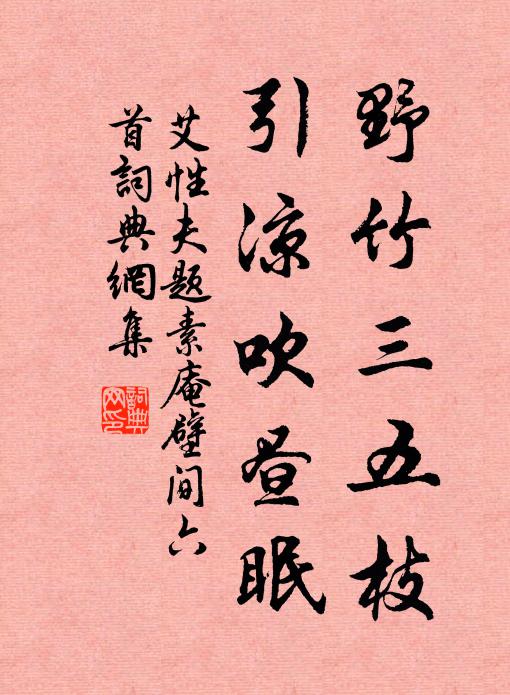 野竹三五枝
引凉吹昼眠
艾性夫题素庵壁间六
首詞典網集
詞典
网印